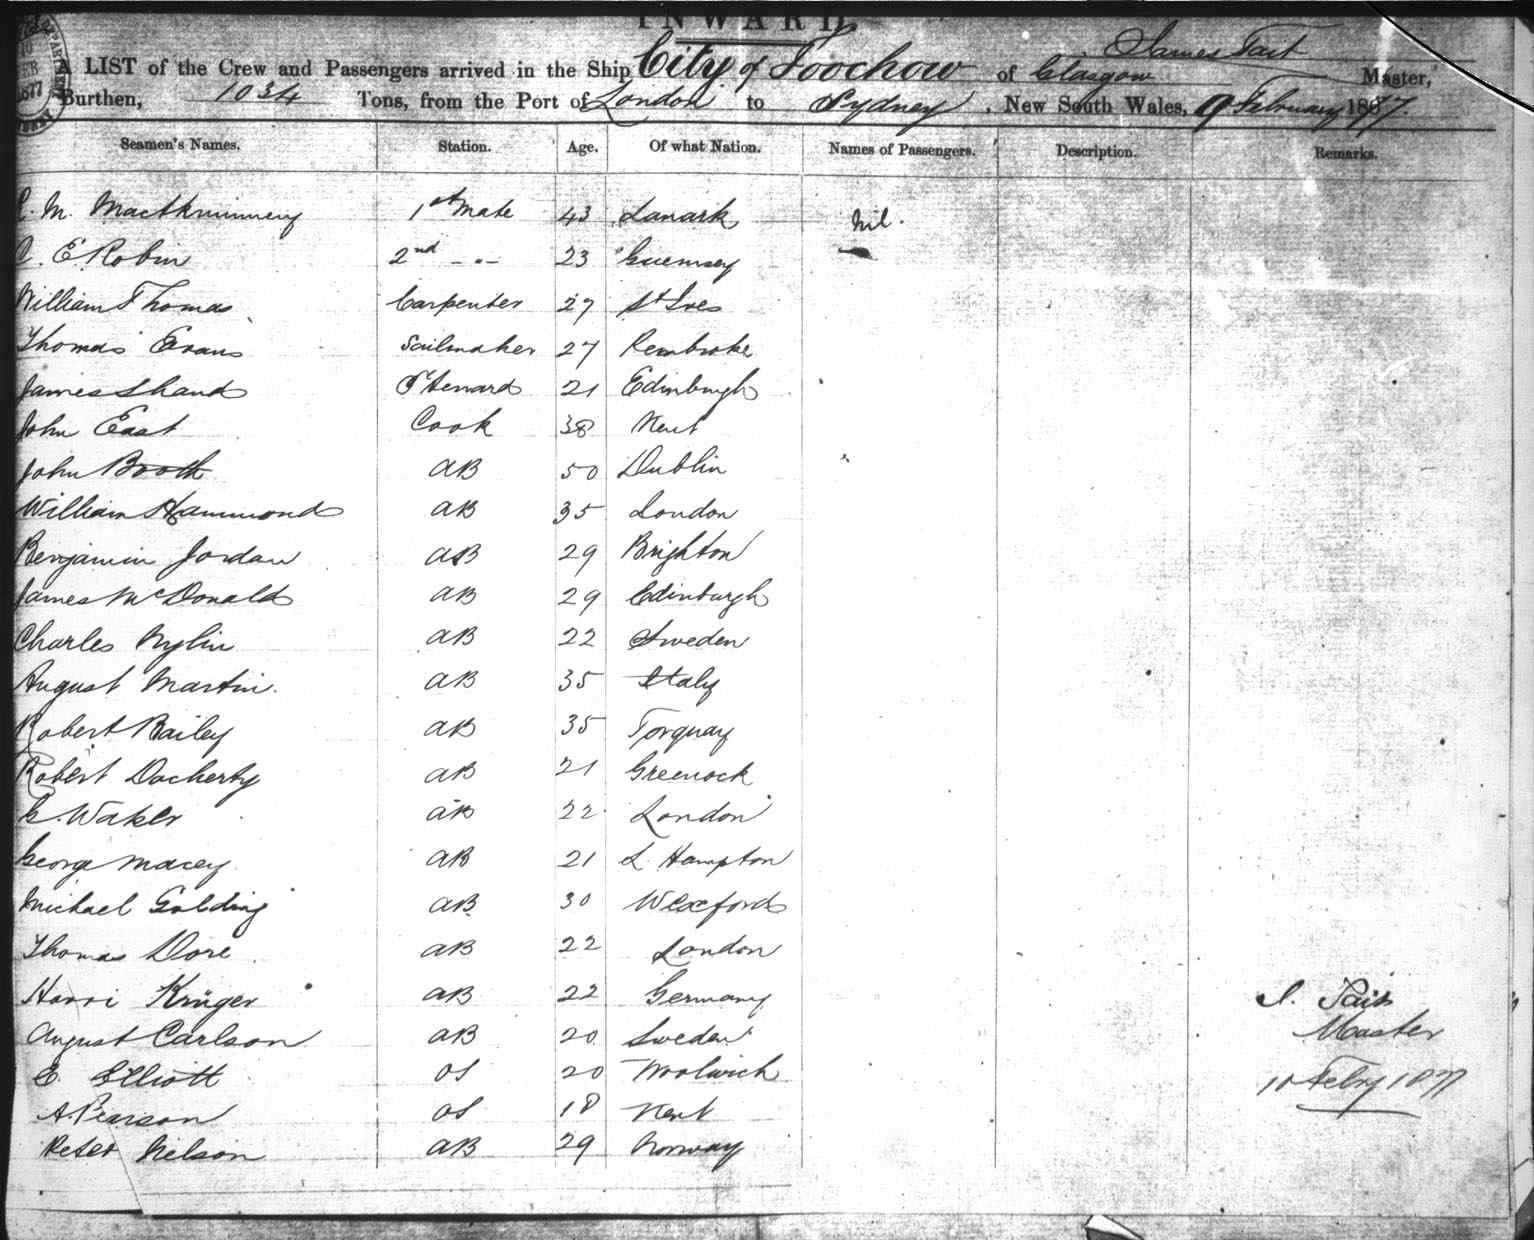 INWARD
A LIST of the Crew and Passengers arrived in the Ship City of Foochow of Glasgow James Tait Master,
Burthen, 1034 Tons, from the Port of London to Sydney, New South Wales, 9 February 1877.
Seamen's Names. Station. Age. Of what Nation. Names of Passengers. Description. Remarks.
M. 1st Mate 43 Lanark Nil.
C. E. Robin 2nd -"- 23 Guernsey
William Thomas Carpenter 27 St Ives
Thomas Evans Sailmaker 27 Pembroke
James Shand Steward 21 Edinburgh
John East Cook 38 Kent
John Booth AB 50 Dublin
William Hammond AB 35 London
Benjamin Jordan AB 29 Brighton
James McDonald AB 29 Edinburgh
Charles Nylin AB 22 Sweden
August Martin. AB 35 Italy
Robert Bailey AB 35 Torquay
Robert Docherty AB 21 Greenock
G. Waker AB 22 London
George Macey AB 21 L. Hampton
Michael Golding AB 30 Wexford
Thomas Dore AB 22 London
Harri Krüger AB 22 Germany
August Carlson AB 20 Sweden
E. Elliott OS 20 Woolwich
A. Pearson OS 18 Kent
Peter Nelson AB 29 Norway
J. Tait
Master
10 Febry 1877